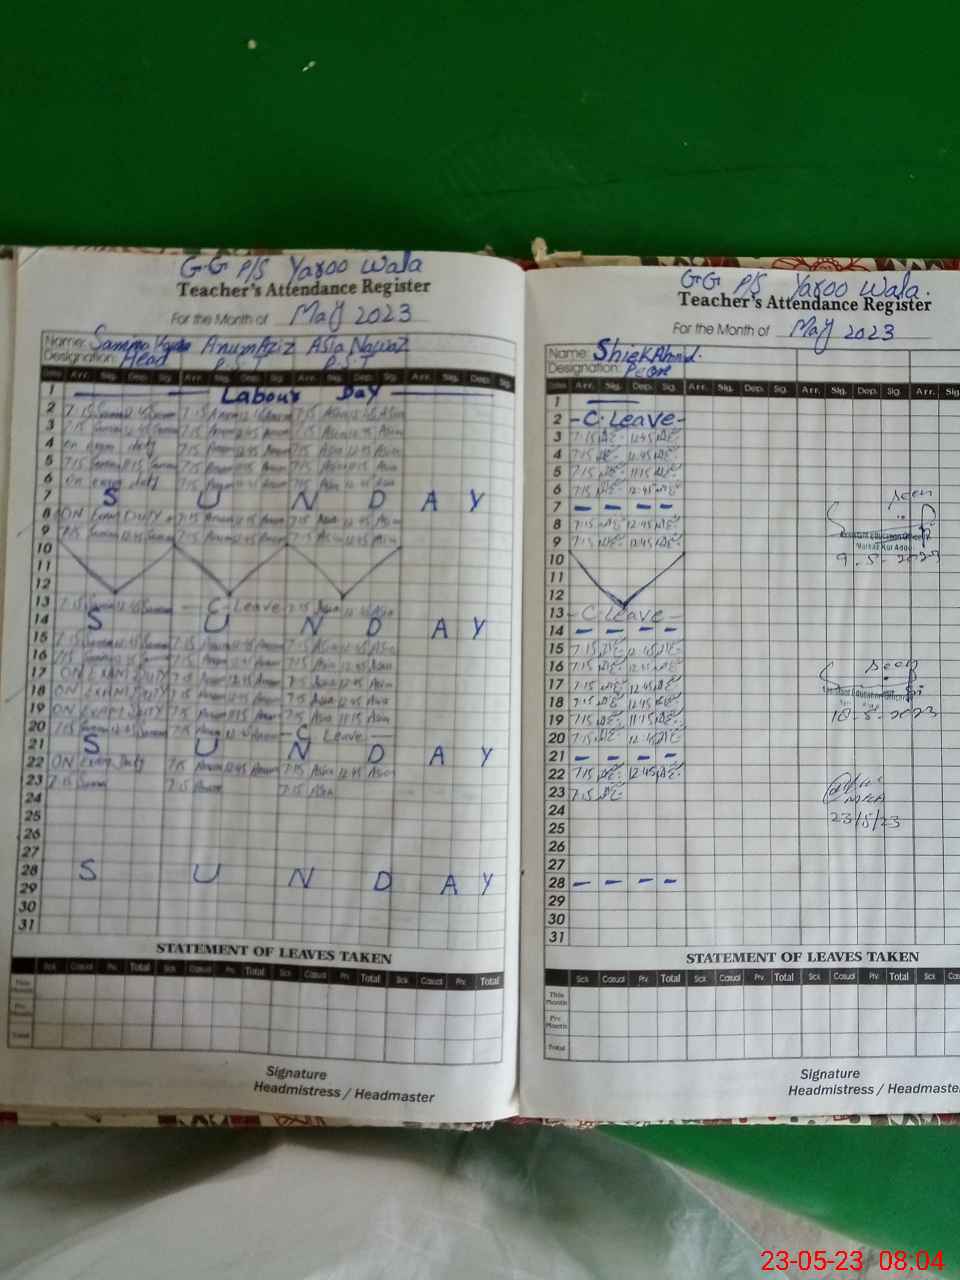 G.G P/S Yaroo Wala
Teacher's Attendance Register
For the Month of May 2023
Name: Samina Anum Aziz Asia Nawaz
Designation: Head P.S.T P.S.T
Date Arr. Sig. Dep. Sig. Arr. Sig. Dep. Sig. Arr. Sig. Dep. Sig. Arr. Sig. Dep. Sig.
1 Labour Day
2 7:15 12:45 7:15 Anum 12:45 Anum 7:15 Asia 12:45 Asia
3 7:15 12:45 7:15 Anum 12:45 Anum 7:15 Asia 12:45 Asia
4 on exam duty 7:15 Anum 12:45 Anum 7:15 Asia 12:45 Asia
5 7:15 11:15 7:15 Anum 11:15 Anum 7:15 Asia 11:15 Asia
6 on exam duty 7:15 Anum 12:45 Anum 7:15 Asia 12:45 Asia
7 S U N D A Y
8 ON Exam DUTY 7:15 Anum 12:45 Anum 7:15 Asia 12:45 Asia
9 7:15 12:45 7:15 Anum 12:45 Anum 7:15 Asia 12:45 Asia
10
11
12
13 7:15 12:45 C-Leave 7:15 Asia 12:45 Asia
14 S U N D A Y
15 7:15 12:45 7:15 Anum 12:45 Anum 7:15 Asia 12:45 Asia
16 7:15 12:45 7:15 Anum 12:45 Anum 7:15 Asia 12:45 Asia
17 ON EXAM DUTY 7:15 Anum 12:45 Anum 7:15 Asia 12:45 Asia
18 ON EXAM DUTY 7:15 Anum 12:45 Anum 7:15 Asia 12:45 Asia
19 ON EXAM DUTY 7:15 Anum 11:15 Anum 7:15 Asia 11:15 Asia
20 7:15 12:45 7:15 Anum 12:45 Anum C Leave
21 S U N D A Y
22 ON Exam Duty 7:15 Anum 12:45 Anum 7:15 Asia 12:45 Asia
23 7:15 7:15 Anum 7:15 Asia
24
25
26
27
28 S U N D A Y
29
30
31
STATEMENT OF LEAVES TAKEN
Sick Casual Prv. Total Sick Casual Prv. Total Sick Casual Prv. Total Sick Casual Prv. Total
This Month
Prv Month
Total
Signature
Headmistress / Headmaster
G.G P/S Yaroo Wala.
Teacher's Attendance Register
For the Month of May 2023
Name: Shiek Ahmd.
Designation:
Date Arr. Sig. Dep. Sig. Arr. Sig. Dep. Sig. Arr. Sig. Dep. Sig. Arr. Sig.
1
2 -C.Leave-
3 7:15 12:45
4 7:15 12:45
5 7:15 11:15
6 7:15 12:45
7 - - - -
8 7:15 12:45
9 7:15 12:45
10
11
12
13 -C-Leave-
14 - - - -
15 7:15 12:45
16 7:15 12:45
17 7:15 12:45
18 7:15 12:45
19 7:15 11:15
20 7:15 12:45
21 - - - -
22 7:15 12:45
23 7:15
24
25
26
27
28 - - - -
29
30
31
seen
Assistant Education Officer
9-5-2023
seen
18-5-2023
23/5/23
STATEMENT OF LEAVES TAKEN
Sick Casual Prv. Total Sick Casual Prv. Total Sick Casual Prv. Total Sick Casual
This Month
Prv Month
Total
Signature
Headmistress / Headmaster
23-05-23 08:04